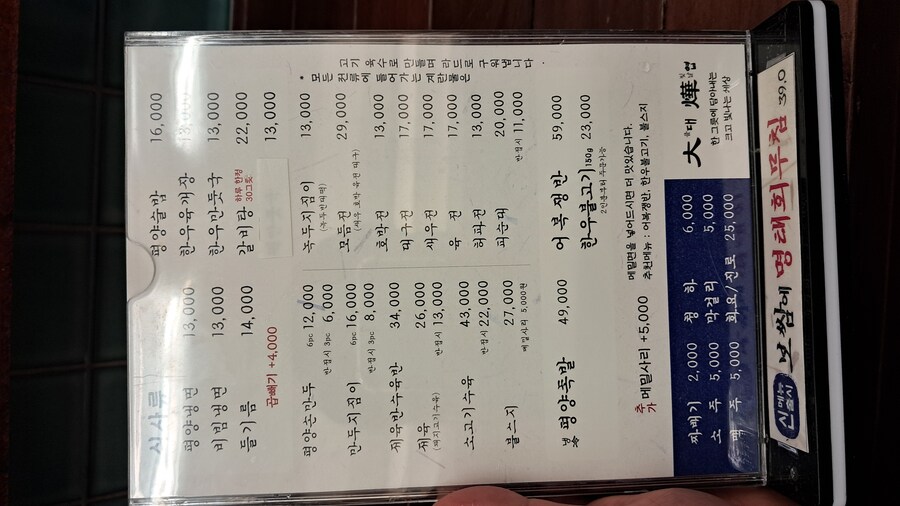 식사류
평양냉면 13,000
비빔냉면 13,000
들기름 14,000
곱빼기 +4,000
평양온반 16,000
한우육개장 13,000
한우만둣국 13,000
갈비탕 하루 한정 30그릇 22,000
13,000
평양손만두 6pc 12,000
반접시 3pc 6,000
만두지짐이 6pc 16,000
반접시 3pc 8,000
제육반수육반 34,000
제육 26,000
(돼지고기수육) 반접시 13,000
소고기수육 43,000
반접시 22,000
불스지 27,000
메밀사리 5,000원
녹두지짐이 13,000
(녹두빈대떡)
모듬전 29,000
(새우 호박 육전 대구)
호박전 13,000
대구전 17,000
새우전 17,000
육전 17,000
허파전 13,000
피순대 20,000
반접시 11,000
냉 평양족발 49,000
어복쟁반 59,000
한우불고기 150g 23,000
2인분부터 주문가능
추가 메밀사리 +5,000
메밀면을 넣어드시면 더 맛있습니다.
추천메뉴 : 어복쟁반, 한우불고기, 불스지
• 모든 전류에 들어가는 계란물은
고기 육수로 만들며 라드로 구워냅니다.
짜배기 2,000
소주 5,000
맥주 5,000
청하 6,000
막걸리 5,000
화요/진로 25,000
大대 燁엽
한 그릇에 담아내는
크고 빛나는 세상
신메뉴 출시 명태회무침 39.0